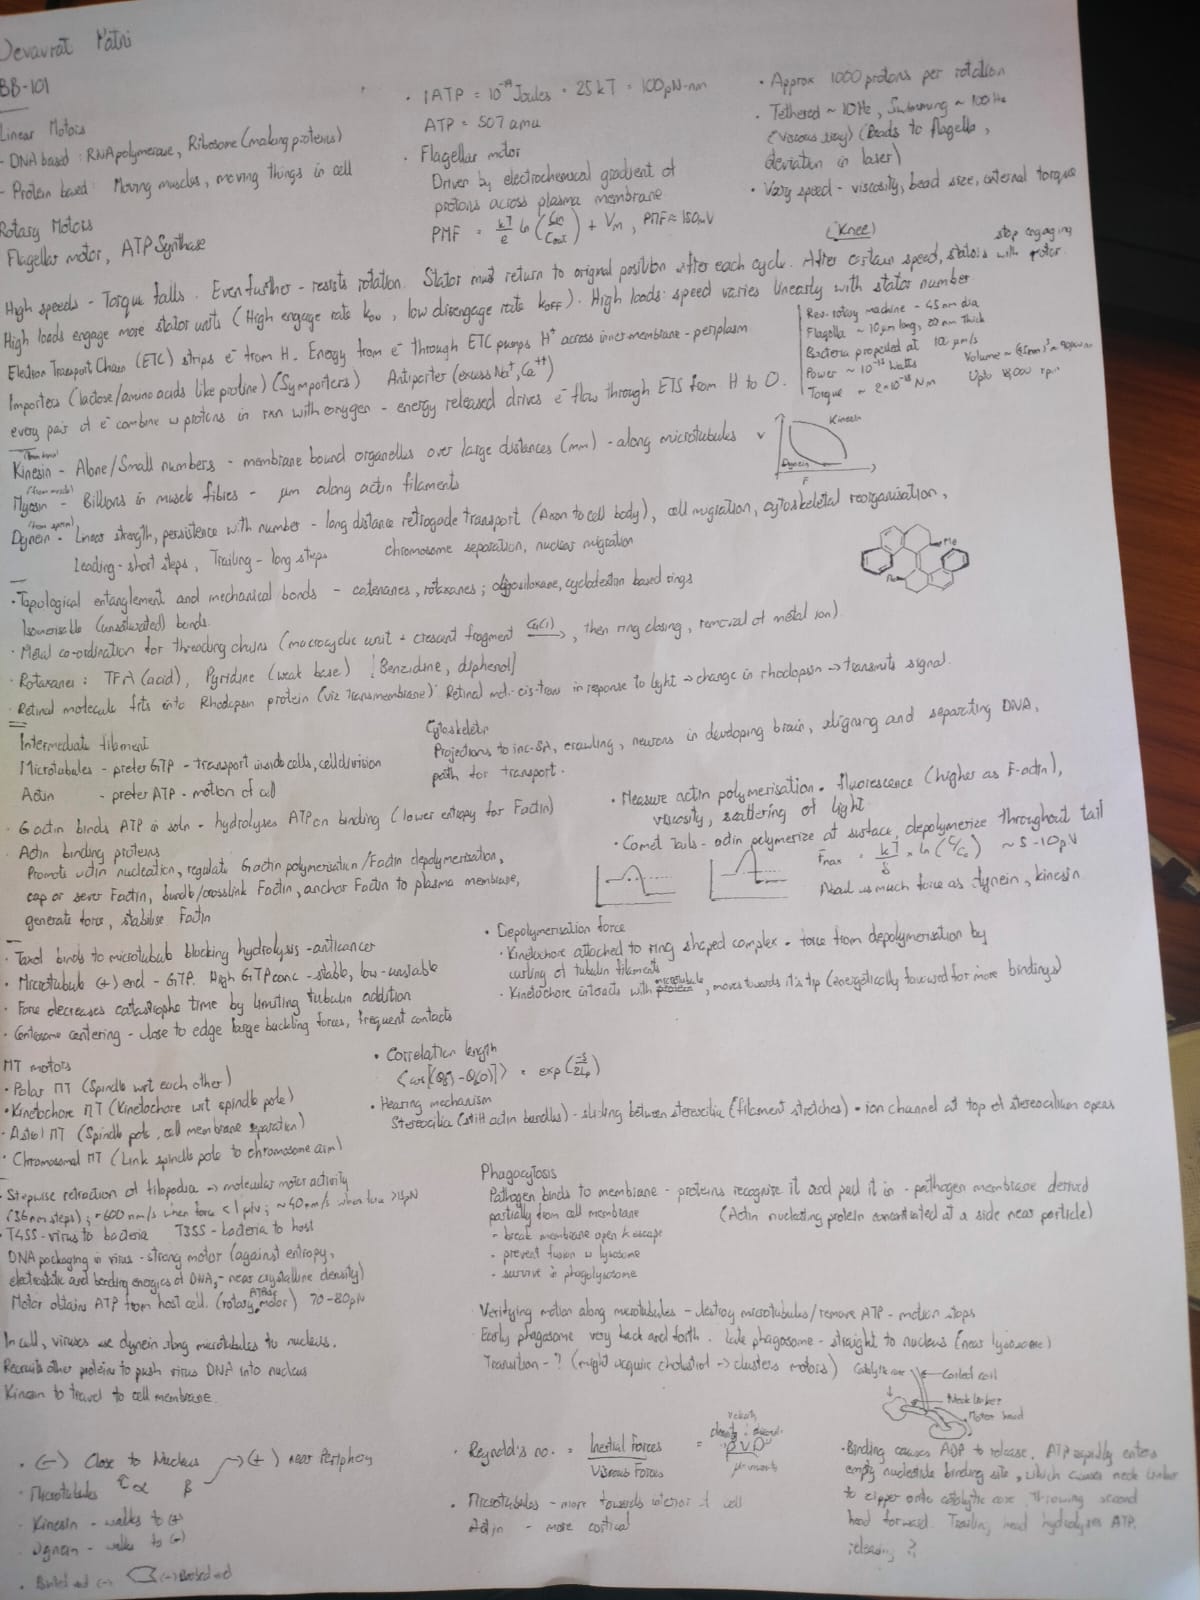 Devavrat Patni
BB-101
Linear Motors
- DNA based : RNA polymerase, Ribosome (making proteins)
- Protein based : Moving muscles, moving things in cell
Rotary Motors
Flagellar motor, ATP Synthase
· 1 ATP = 10⁻¹⁹ Joules = 25 kT = 100 pN-nm
ATP = 507 amu
· Flagellar motor
Driven by electrochemical gradient of
protons across plasma membrane
PMF = kT/e ln (Cin/Cout) + Vm , PMF ≈ 150mV
· Approx 1000 protons per rotation
· Tethered ~ 10Hz, Swimming ~ 100Hz
(Viscous drag) (Beads to flagella,
deviation in laser)
· Vary speed - viscosity, bead size, external torque
(Knee)
High speeds - Torque falls. Even further - resists rotation. Stator must return to original position after each cycle. After certain speed, stators stop engaging with rotor.
High loads engage more stator units (High engage rate kON, low disengage rate kOFF). High loads: speed varies linearly with stator number
Electron Transport Chain (ETC) strips e⁻ from H. Energy from e⁻ through ETC pumps H⁺ across inner membrane - periplasm
Importers (lactose/amino acids like proline) (Symporters) Antiporter (excess Na⁺, Ca⁺⁺)
every pair of e⁻ combine w protons in rxn with oxygen - energy released drives e⁻ flow through ETS from H to O.
Rev. rotary machine - 45 nm dia
Flagella ~ 10 μm long, 20 nm thick
Bacteria propelled at μm/s
Power ~ Watts
Torque ~ Nm
Volume ~
Upto rpm
Kinesin - Alone/Small numbers - membrane bound organelles over large distances (mm) - along microtubules
Myosin - Billions in muscle fibres - μm along actin filaments
Dynein - Linear strength, persistence with number - long distance retrogade transport (Axon to cell body), cell migration, cytoskeletal reorganisation,
Leading - short steps, Trailing - long steps chromosome separation, nuclear migration
V
Kinesin
Dynein
F
Me
· Topological entanglement and mechanical bonds - catenanes, rotaxanes ; oligosiloxane, cyclodextrin based rings
Isomerisable (unsaturated) bonds.
· Metal co-ordination for threading chains (macrocyclic unit + crescent fragment Cu(I) →, then ring closing, removal of metal ion)
· Rotaxanes : TFA (acid), Pyridine (weak base) [Benzidine, diphenol]
· Retinal molecule fits into Rhodopsin protein (viz Transmembrane). Retinal mol. - cis-trans in response to light → change in rhodopsin → transmits signal.
Intermediate filament
Microtubules - prefer GTP - transport inside cells, cell division
Actin - prefer ATP - motion of cell
Cytoskeleton
Projections to inc. SA, crawling, neurons in developing brain, aligning and separating DNA,
path for transport.
· G actin binds ATP in soln - hydrolyses ATP on binding (lower entropy for Factin)
· Actin binding proteins
Promote actin nucleation, regulate Gactin polymerisation/Factin depolymerisation,
cap or sever Factin, bundle/crosslink Factin, anchor Factin to plasma membrane,
generate force, stabilise Factin
· Measure actin polymerisation - fluorescence (higher as F-actin),
viscosity, scattering of light
· Comet Tails - actin polymerize at surface, depolymerize throughout tail
Fmax = kT/δ × ln (C/Cc) ~ 5-10pN
About as much force as dynein, kinesin
· Taxol binds to microtubule blocking hydrolysis - anticancer
· Microtubule (+) end - GTP. High GTP conc - stable, low - unstable
· Force decreases catastrophe time by limiting tubulin addition
· Centrosome centering - close to edge large buckling forces, frequent contacts
· Depolymerisation force
· Kinetochore attached to ring shaped complex - force from depolymerisation by
curling of tubulin filaments
· Kinetochore interacts with microtubule, moves towards it's tip (energetically favoured for more bindings)
MT motors
· Polar MT (Spindle wrt each other)
· Kinetochore MT (Kinetochore wrt spindle pole)
· Astral MT (Spindle pole, cell membrane separation)
· Chromosomal MT (Link spindle pole to chromosome arm)
· Correlation length
⟨cos[θ(s) - θ(0)]⟩ = exp (-s/2Lp)
· Hearing mechanism
Stereocilia (stiff actin bundles) - sliding between stereocilia (filament stretches) - ion channel at top of stereocilium opens
· Stepwise retraction of filopodia → molecular motor activity
(36nm steps) ; ~600 nm/s when force < 1 pN ; ~40nm/s when force
· T4SS - virus to bacteria T3SS - bacteria to host
DNA packaging in virus - strong motor (against entropy,
electrostatic and bending energies of DNA, - near crystalline density)
Motor obtains ATP from host cell. (rotary ATPase motor) 70-80pN
In cell, viruses use dynein along microtubules to nucleus.
Recruits other proteins to push virus DNA into nucleus
Kinesin to travel to cell membrane.
Phagocytosis
Pathogen binds to membrane - proteins recognise it and pull it in - pathogen membrane derived
partially from cell membrane (Actin nucleating protein concentrated at a side near particle)
- break membrane open & escape
- prevent fusion w lysosome
- survive in phagolysosome
· Verifying motion along microtubules - destroy microtubules/remove ATP - motion stops
Early phagosome very back and forth. Late phagosome - straight to nucleus (near lysosome)
Transition - ? (might acquire cholestrol → clusters motors)
Catalytic core
Coiled coil
Neck linker
Motor head
· (-) Close to Nucleus → (+) near Periphery
· Microtubules α β
· Kinesin - walks to (+)
· Dynein - walks to (-)
· Barbed end
· Reynold's no. = Inertial Forces / Viscous Forces = ρVD / μ
velocity
density
viscosity
· Microtubules - more towards interior of cell
Actin - more cortical
· Binding causes ADP to release. ATP rapidly enters
empty nucleotide binding site, which causes neck linker
to zipper onto catalytic core throwing second
head forward. Trailing head hydrolyses ATP,
releasing Pi